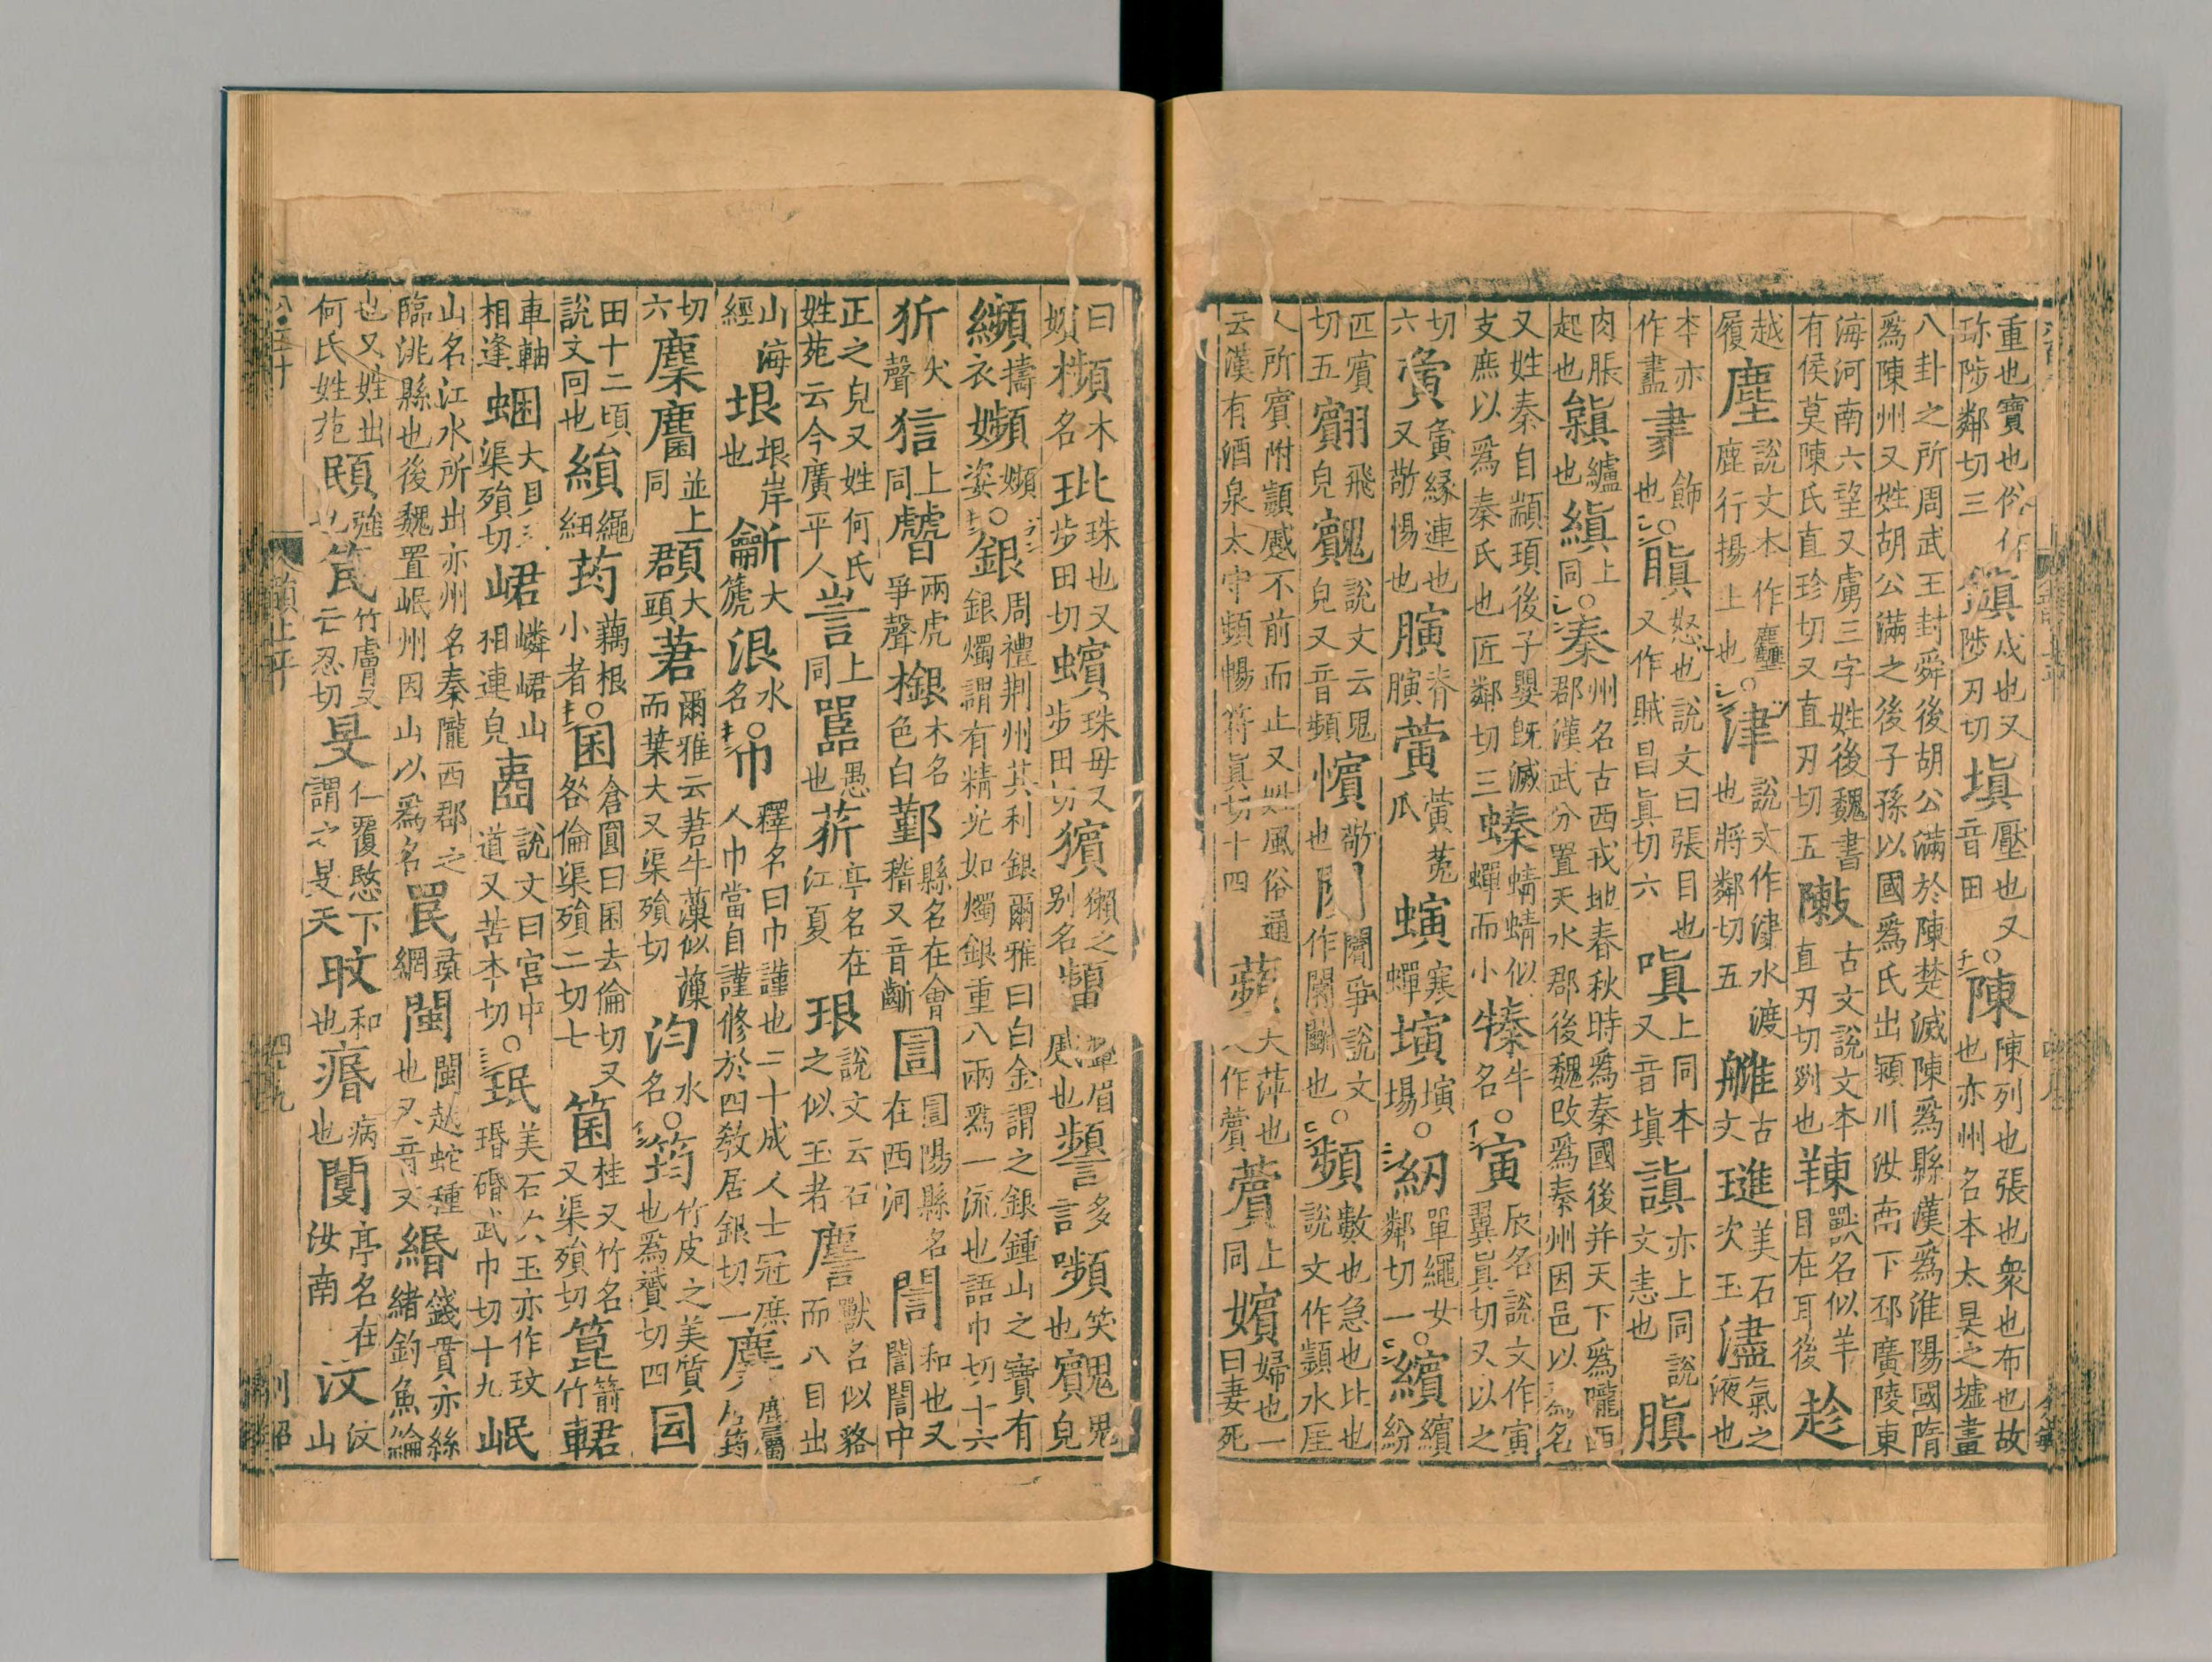 重也寶也俗作珎陟鄰切三 鎭戍也又陟刃切 塡壓也又音田 陳陳列也張也衆也布也故也亦州名本太昊之墟畫
八卦之所周武王封舜後胡公滿於陳楚滅陳爲縣漢爲淮陽國隋爲陳州又姓胡公滿之後子孫以國爲氏出潁川汝南下邳廣陵東
海河南六望又虜三字姓後魏書有侯莫陳氏直珍切又直刃切五 敶古文說文本直刃切列也 䍶獸名似羊目在耳後 趁
越履 塵說文本作𪋻鹿行揚土也 津說文作𣸁水渡也將鄰切五 𦪈古文 璡美石次玉 濜氣之液也
本亦作䀆 𦘔飾也 瞋怒也說文曰張目也又作䀼昌眞切六 嗔上同本又音塡 謓亦上同說文恚也 䐜
肉脹起也 𦇔纑也 縝上同 秦州名古西戎地春秋時爲秦國後并天下爲隴西郡漢武分置天水郡後魏改爲秦州因邑以爲名
又姓秦自顓頊後子嬰旣滅支庶以爲秦氏也匠鄰切三 螓蜻蜻似蟬而小 𤛓牛名 寅辰名說文作寅翼眞切又以之
切六 夤夤緣連也又敬惕也 䐴脊䐴 𦺕𦺕菟瓜 螾寒蟬 𡑞𡑞塲 紉單繩女鄰切一 繽繽紛
匹賓切五 䎙飛皃 䚔說文云䚔皃又音頻 㦏敬也 闠鬭爭說文作鬮鬭也 頻數也急也比也說文作顰水厓
人所賓附顰戚不前而止又姓風俗通云漢有酒泉太守頻暢符眞切十四 蘋大萍也又作薲 薲上同 嬪婦也一曰妻死
曰嬪 櫇木名 玭珠也又步田切 蠙珠母又步田切 獱獺之別名 顰蹙眉 慼也 䛯多言 嚬笑也 䰼鬼皃
䌟擣衣 㰋姿 銀周禮荆州其利銀爾雅曰白金謂之銀鍾山之寶有銀燭謂有精光如燭銀重八兩爲一流也語巾切十六
犾犬聲 狺上同 䖐兩虎爭聲 檭木名色白 鄞縣名在會稽又音齗 圁圁陽縣名在西河 誾和也又誾誾中
正之皃又姓何氏姓苑云今廣平人 訔上同 嚚愚也 䓄亭名在江夏 珢說文云石之似玉者 𪋮獸名似貉而八目出
山海經 垠垠岸也 䶩大箎 泿水名 巾釋名曰巾謹也二十成人士冠庶人巾當自謹修於四教居銀切一 麏麞屬居筠
切六 麇麕並上同 頵大頭 莙爾雅云莙牛薻似薻而葉大又渠殞切 汮水名 筠竹皮之美質也爲贇切四 囩
田十二頃說文回也 縜繩紐 荺藕根小者 囷倉圓曰囷去倫切又咎倫渠殞二切七 箘桂又竹名又渠殞切 箟箭竹 輑
車軸相逢 蜠大貝渠殞切 峮嶙峮山相連皃 壼說文曰宮中道又苦本切 珉美石次玉亦作玟瑉碈武巾切十九 岷
山名江水所出亦州名秦隴西郡之臨洮縣也後魏置岷州因山以爲名 罠彘網 閩閩越蛇種也又音文 緡錢貫亦絲緒釣魚綸
也又姓出何氏姓苑 䪸強也 笢竹膚又亡忍切 旻仁覆愍下謂之旻天 旼和也 痻病也 閿亭名在汝南 汶汶山